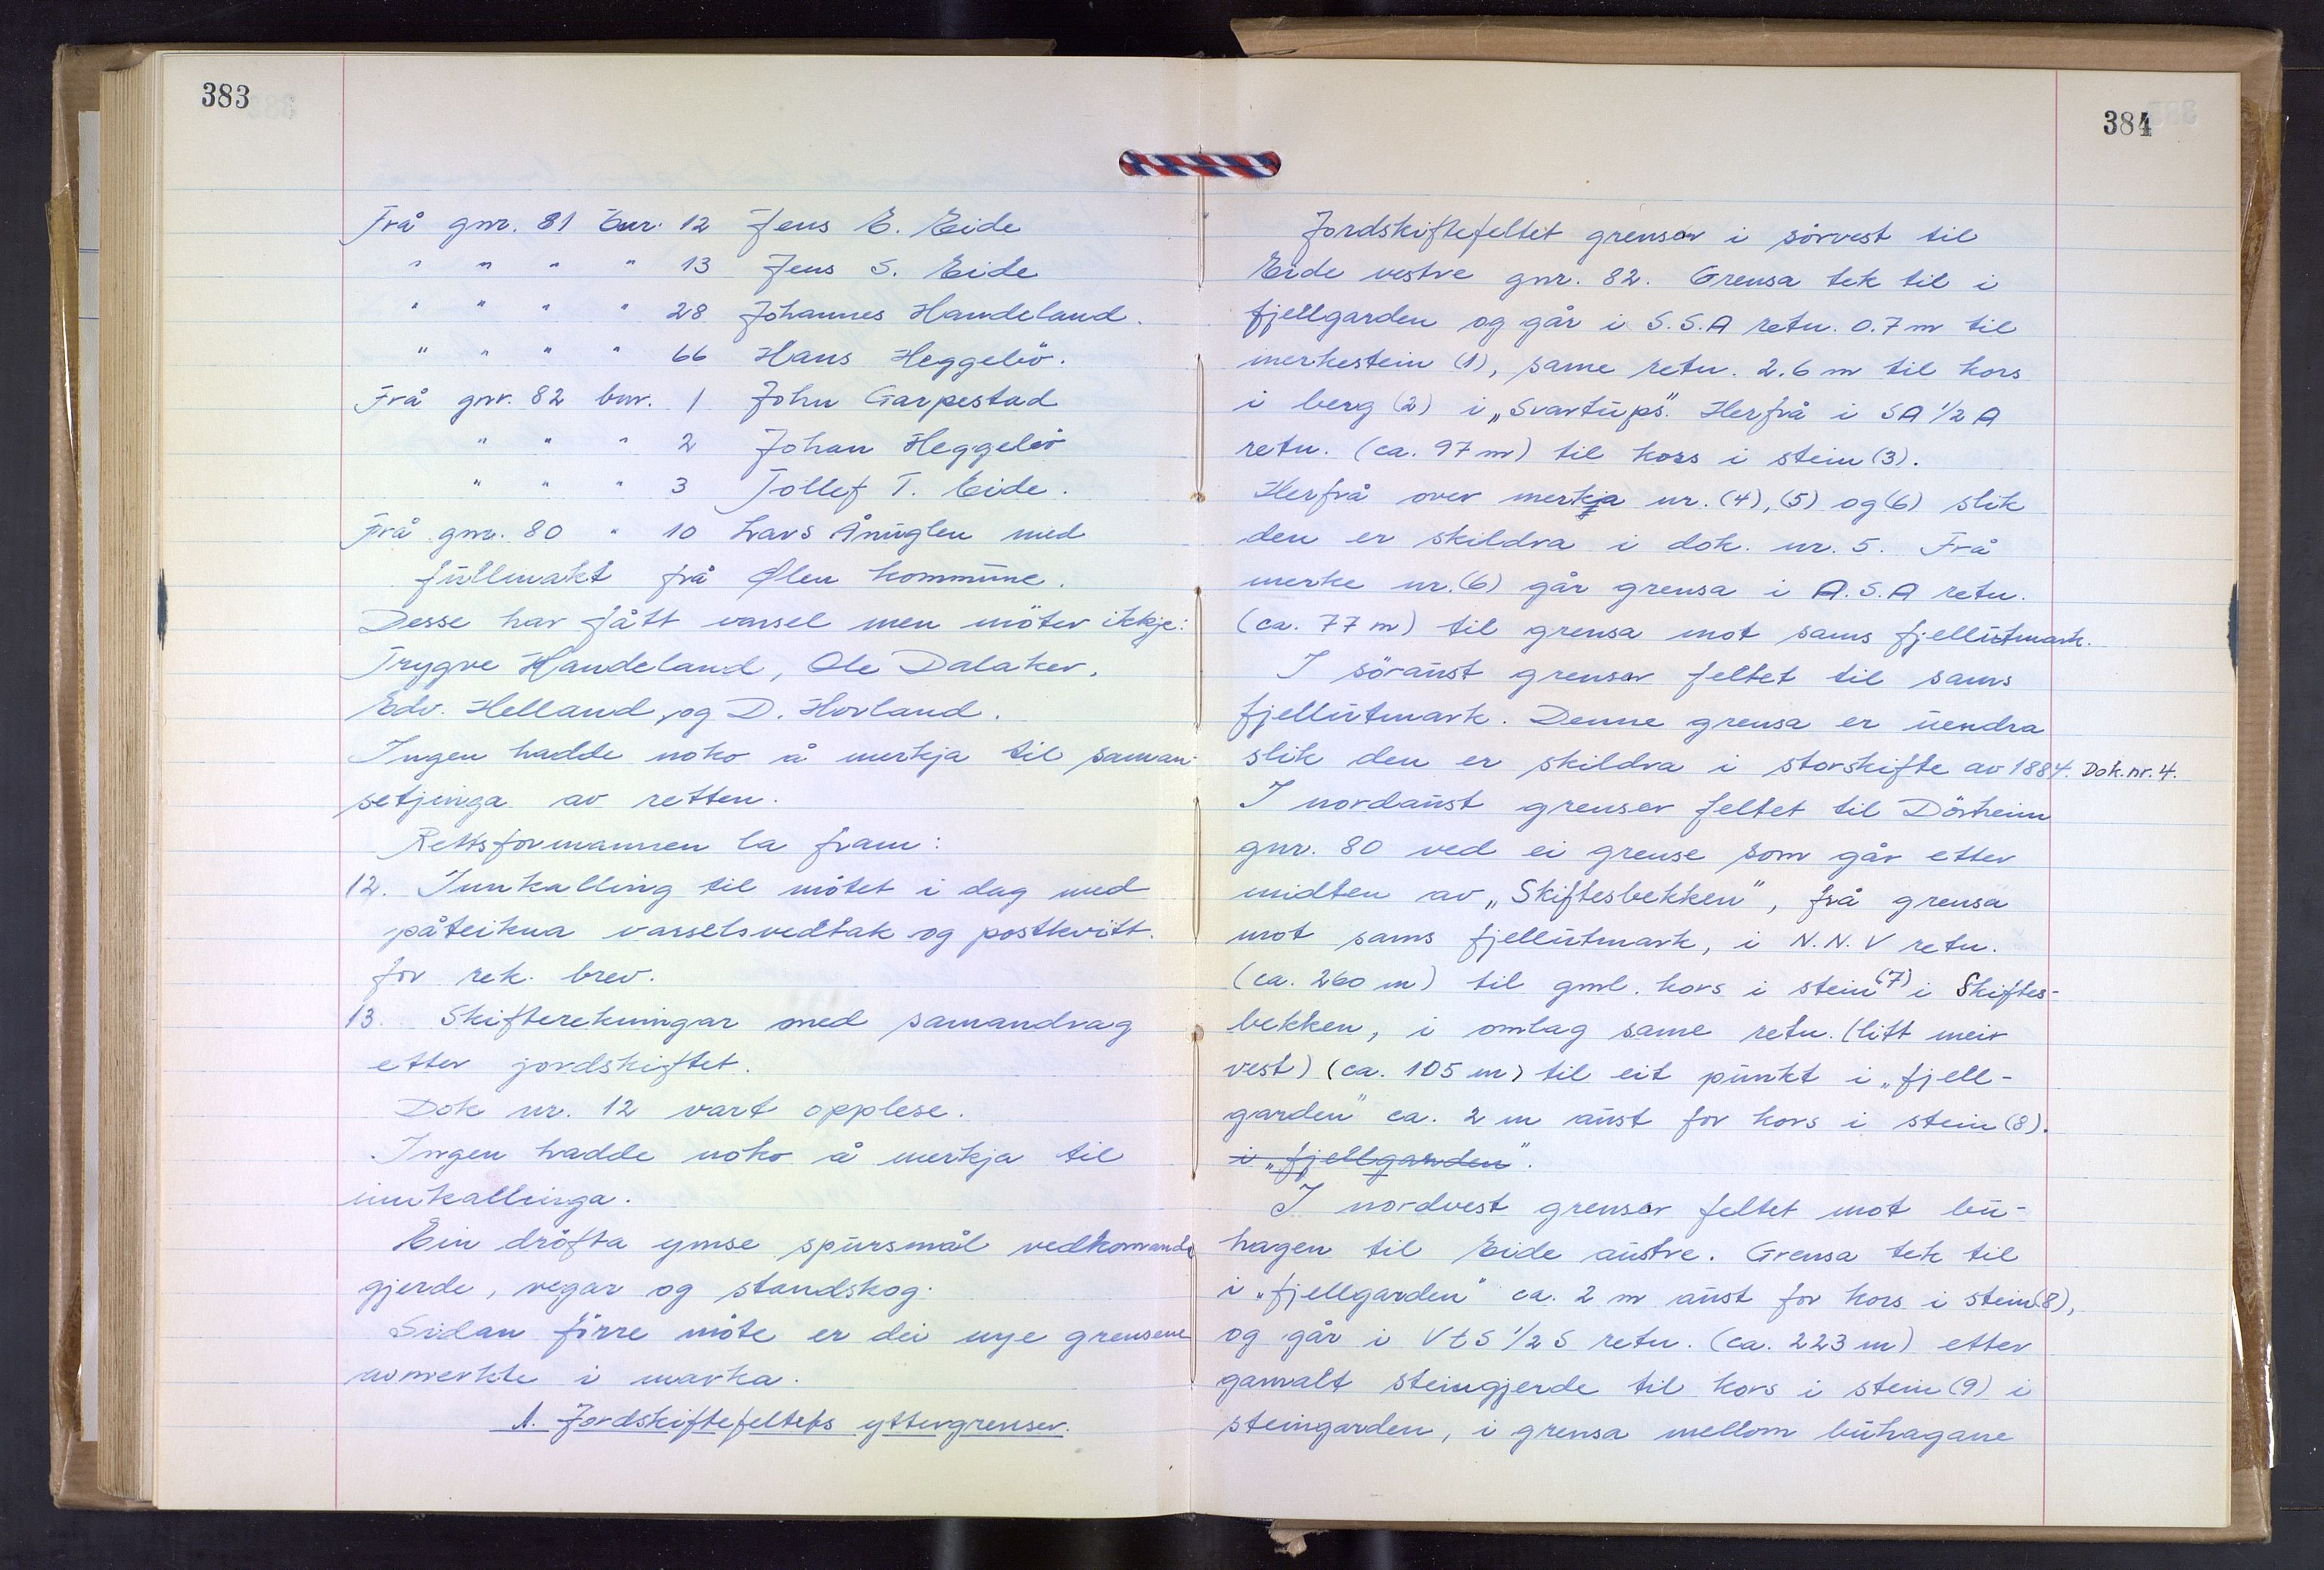 383
Frå gnr. 81 bnr. 12 Jens E. Eide
" " " " 13 Jens S. Eide
" " " " 28 Johannes Handeland.
" " " " 66 Hans Heggelöv.
Frå gnr. 82 bnr. 1 John Garpestad
" " " 2 Johan Heggelöv
" " " 3 Tollef T. Eide.
Frå gnr. 80 " 10 Lars Ånuglen med
fullmakt frå Ølen kommune.
Desse har fått varsel men möter ikkje:
Trygve Handeland, Ole Dalaker,
Edv. Helland, og D. Hovland.
Ingen hadde noko å merkja til saman-
setjinga av retten.
Rettsformannen la fram:
12. Innkalling til mötet i dag med
påteikna varselsvedtak og postkvitt.
for rek. brev.
13. Skifterekningar med samandrag
etter jordskiftet.
Dok nr. 12 vart opplese.
Ingen hadde noko å merkja til
innkallinga.
Ein dröfta ymse spursmål vedkomande
gjerde, vegar og standskog.
Sidan förre möte er dei nye grensene
avmerkte i marka.
A. Jordskiftefeltets yttergrenser.
384
Jordskiftefeltet grensar i sörvest til
Eide vestre gnr. 82. Grensa tek til i
fjellgarden og går i S.S.A retn. 0.7 m til
merkestein (1), same retn. 2.6 m til kors
i berg (2) i „Svartups". Herfrå i SA 1/2 A
retn. (ca. 97 m) til kors i stein (3).
Herfrå over merkja nr. (4), (5) og (6) slik
den er skildra i dok. nr. 5. Frå
merke nr. (6) går grensa i A.S.A retn.
(ca. 77 m) til grensa mot sams fjellutmark.
I söraust grensar feltet til sams
fjellutmark. Denne grensa er uendra
slik den er skildra i storskifte av 1884. Dok. nr. 4.
I nordaust grenser feltet til Dörheim
gnr. 80 ved ei grense som går etter
midten av „Skiftesbekken", frå grensa
mot sams fjellutmark, i N.N.V retn.
(ca. 260 m) til gml. kors i stein (7) i Skiftes-
bekken, i omlag same retn. (litt meir
vest) (ca. 105 m) til eit punkt i „fjell-
garden" ca. 2 m aust for kors i stein (8).
i „fjellgarden".
I nordvest grensar feltet mot bu-
hagen til Eide austre. Grensa tek til
i „fjellgarden" ca. 2 m aust for kors i stein (8),
og går i V t S 1/2 S retn. (ca. 223 m) etter
gamalt steingjerde til kors i stein (9) i
steingarden, i grensa mellom buhagane